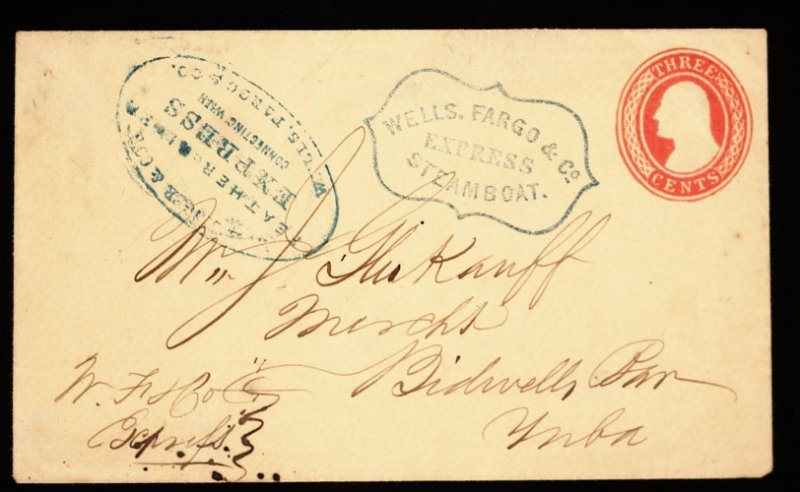 WELLS, FARGO & CO.
CONNECTING WITH
EXPRESS
FEATHER RIVER
& CO'S
WELLS, FARGO & Co.
EXPRESS
STEAMBOAT.
THREE
CENTS
Mr J. Gluckauff
Mercht
Bidwells Bar
Yuba
W. F & Co
Express